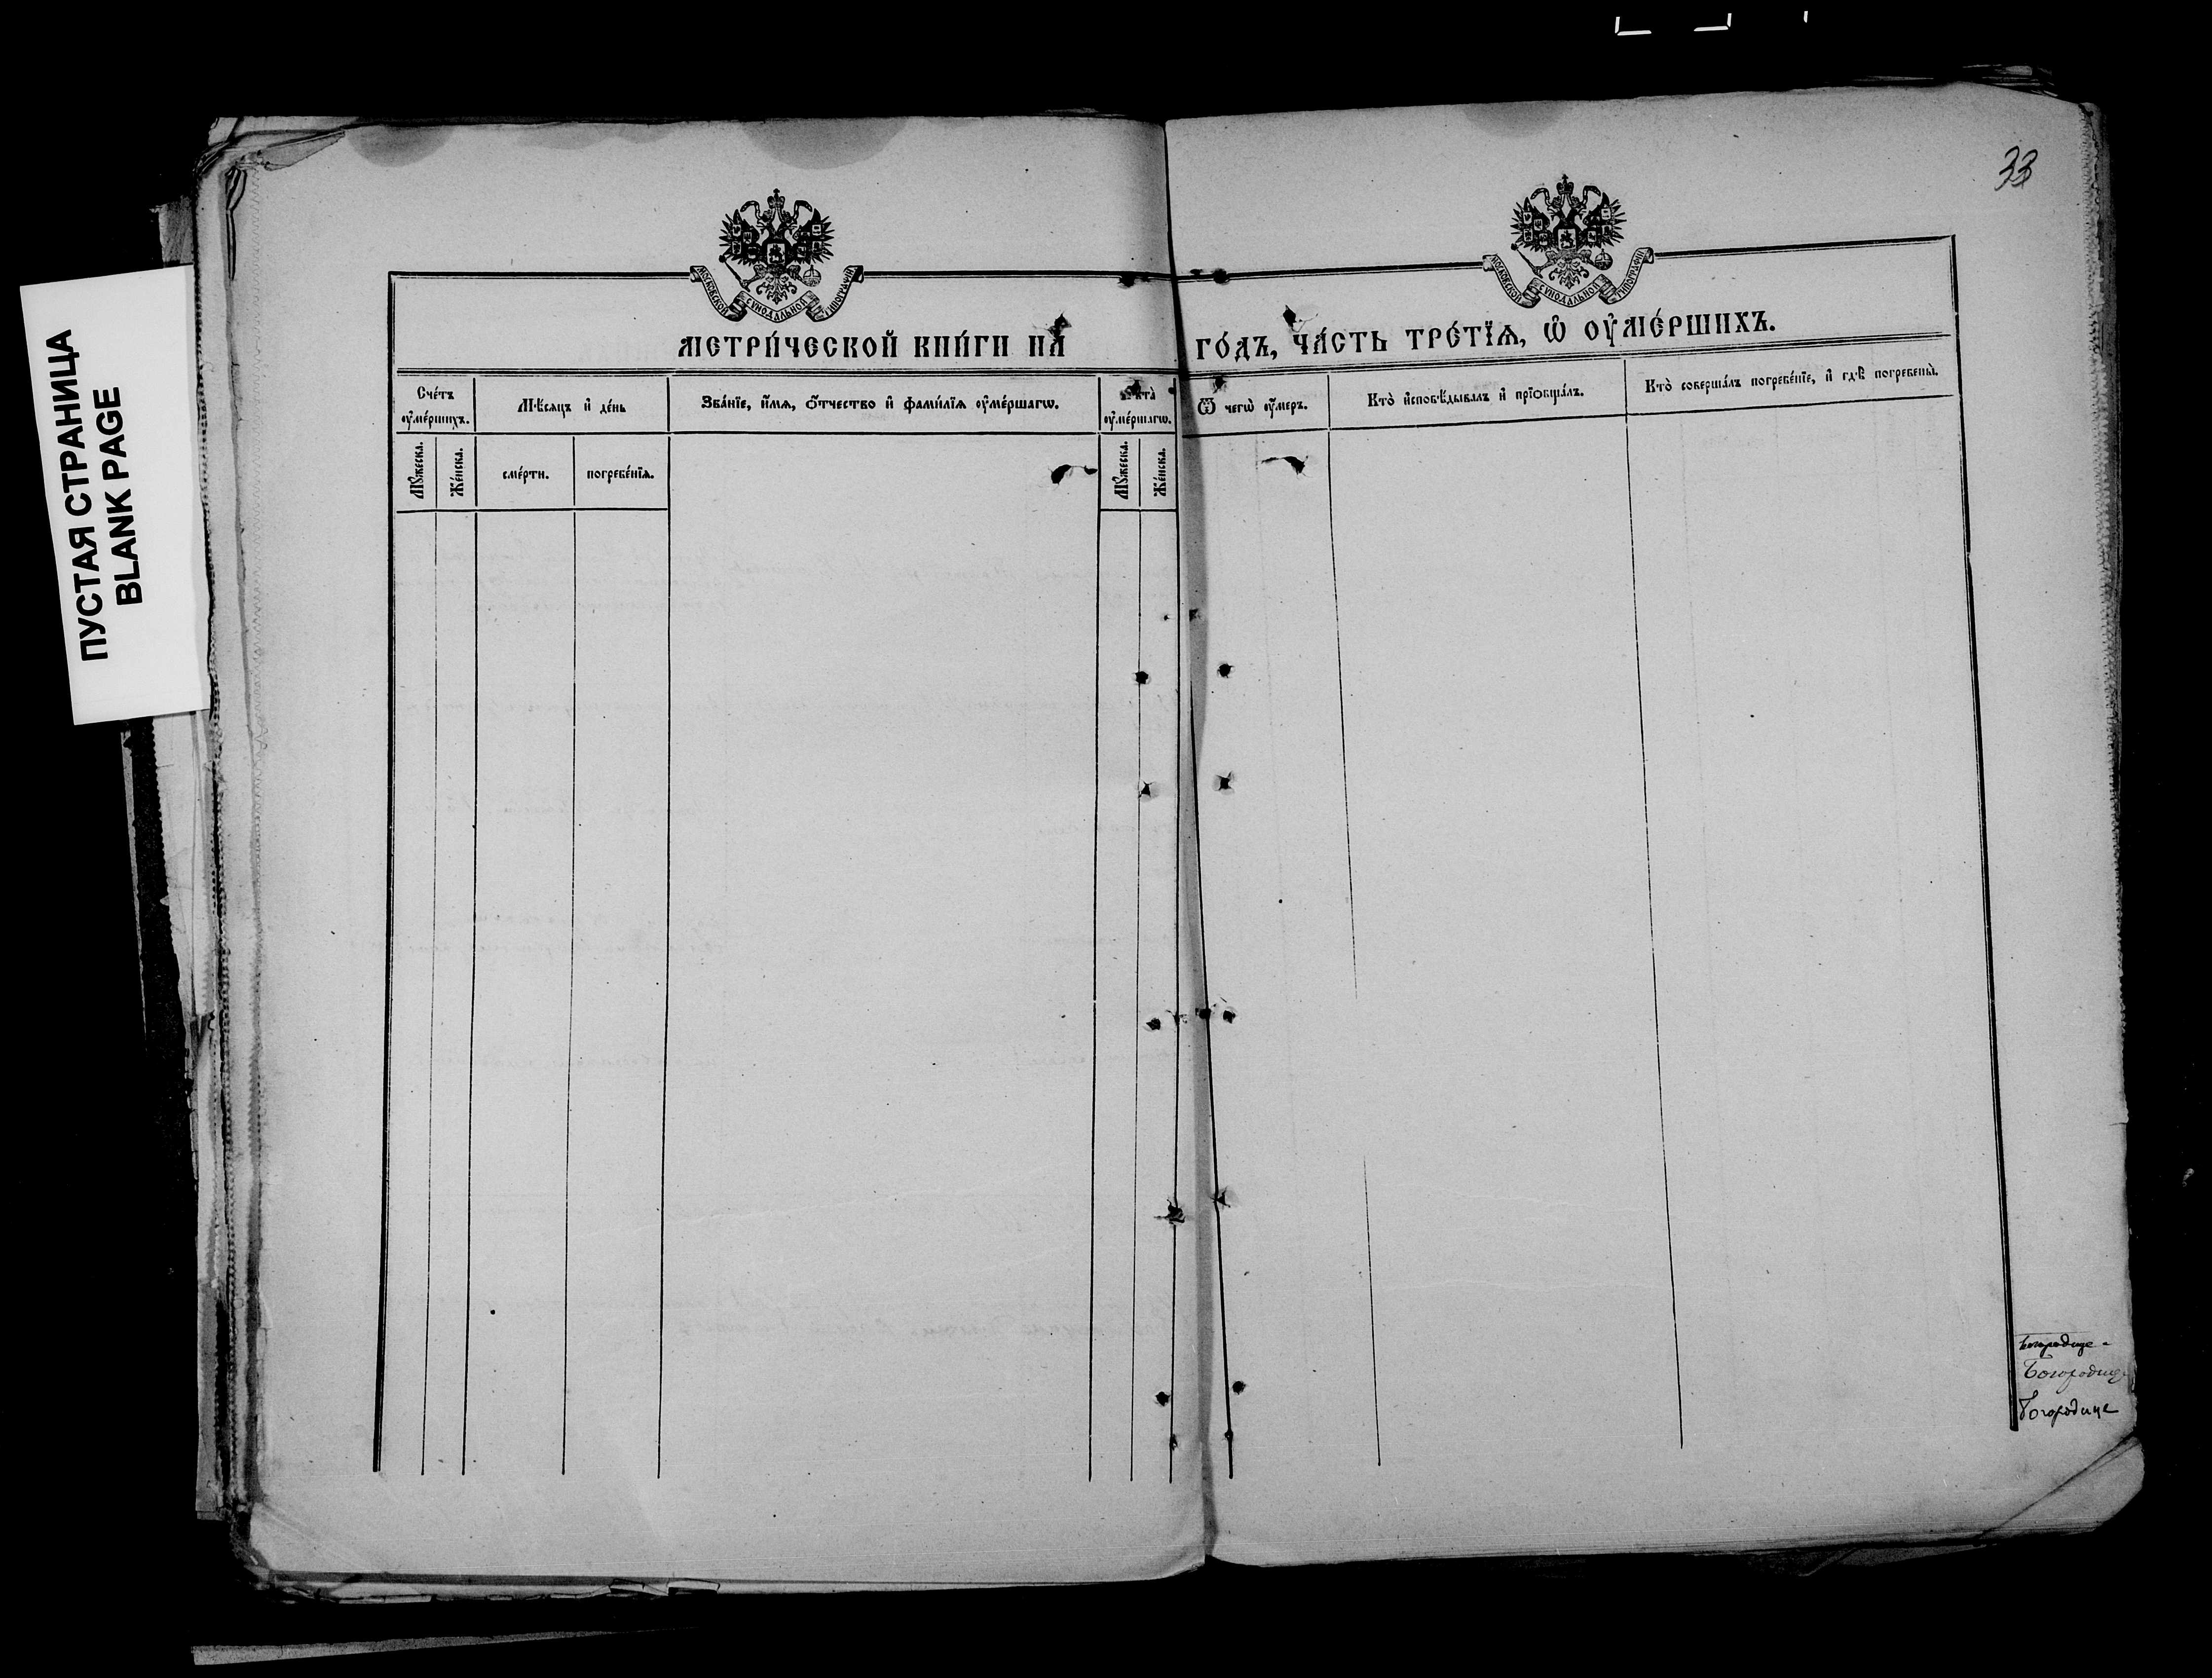 ПУСТАЯ СТРАНИЦА
BLANK PAGE
33
МОСКОВСКОЙ СУНОДАЛЬНОЙ ТИПОГРАФІИ
МОСКОВСКОЙ СУНОДАЛЬНОЙ ТИПОГРАФІИ
МЕТРИ́ЧЕСКОЙ КНИ́ГИ НА̀ ГО́ДЪ, ЧА́СТЬ ТРЕ́ТЇѦ, Ѡ҆ ОУ҆МЕ́РШИХЪ.
Сче́тъ оу҆ме́ршихъ.
Мѣ́сяцъ и҆ де́нь
Зва́нїе, и҆́мѧ, ѻ҆́тчество и҆ фами́лїѧ оу҆ме́ршагѡ.
Лѣ́та оу҆ме́ршагѡ.
Ѿ чегѡ̀ оу҆́меръ.
Кто̀ и҆сповѣ́дывалъ и҆ прїѡбща́лъ.
Кто̀ соверша́лъ погребе́нїе, и҆ гдѣ̀ погребены̀.
Мꙋ́жеска.
Же́нска.
сме́рти.
погребе́нїѧ.
Мꙋ́жеска.
Же́нска.
Богородице-
Богородице
Богородице